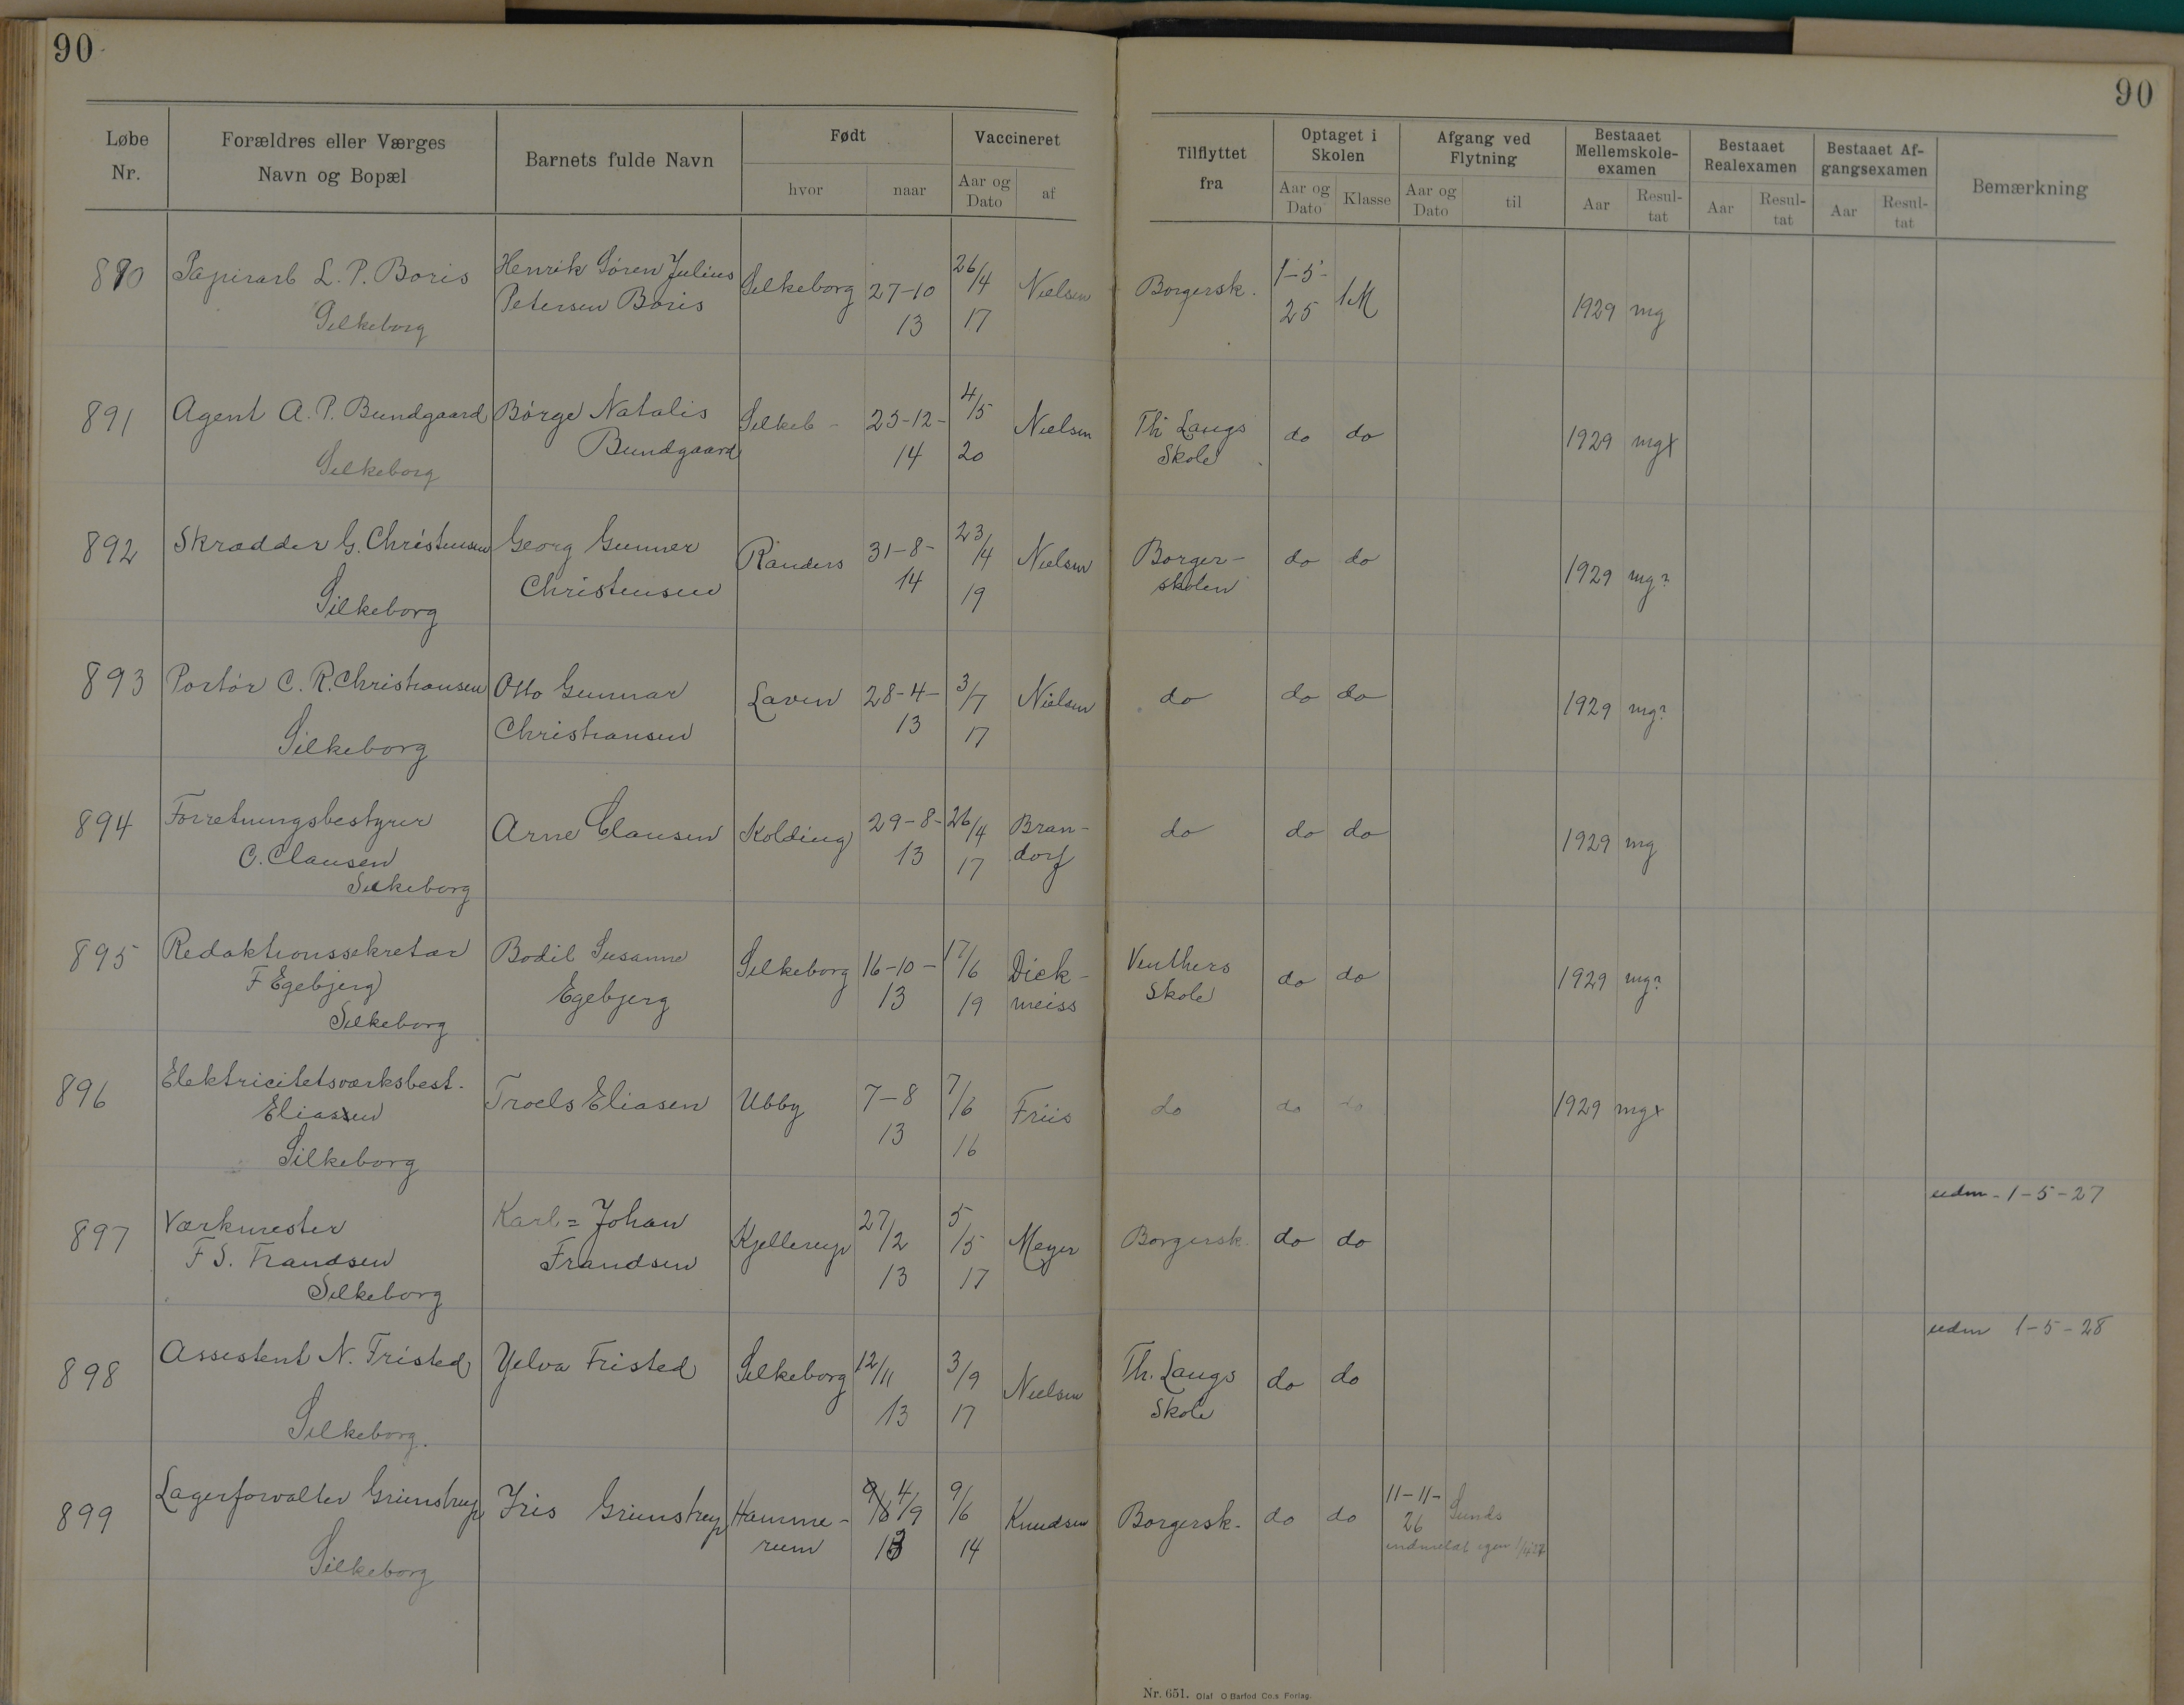 90
90
Løbe Nr. Forældres eller Værges Navn og Bopæl Barnets fulde Navn Født hvor naar Vaccineret Aar og Dato af Tilflyttet fra Optaget i Skolen Aar og Dato Klasse Afgang ved Flytning Aar og Dato til Bestaaet Mellemskole-examen Aar Resul-tat Bestaaet Realexamen Aar Resul-tat Bestaaet Af-gangsexamen Aar Resul-tat Bemærkning
890 Papirarb L. P. Boris Henrik Sören Julius Silkeborg 27-10 26/4 Nielsen Borgersk. 1-5- 1M 1929 mg
Silkeborg Petersen Boris 13 17 25
891 Agent A. P. Bundgaard Börge Natalis Silkeb - 25-12- 4/5 Nielsen Th Langs do do 1929 mgx
Silkeborg Bundgaard 14 20 Skole
892 Skrædder G. Christensen Georg Gunner Randers 31-8- 23/4 Nielsen Borger- do do 1929 mg?
Silkeborg Christensen 14 19 skolen
893 Portör C. R. Christiansen Otto Gunnar Laven 28-4- 3/7 Nielsen do do do 1929 mg?
Silkeborg Christiansen 13 17
894 Forretningsbestyrer Arne Clausen Kolding 29-8- 26/4 Bran- do do do 1929 mg
C. Clausen 13 17 dorf
Silkeborg
895 Redaktionssekretær Bodil Susanne Silkeborg 16-10- 17/6 Dick- Venthers do do 1929 mg?
F Egebjerg Egebjerg 13 19 meiss Skole
Silkeborg
896 Elektricitetsværksbest. Troels Eliasen Ubby 7-8 7/6 Friis do do do 1929 mgx
Eliasen 13 16
Silkeborg
897 Værkmester Karl=Johan Kjellerup 27/2 5/5 Meyer Borgersk do do udm - 1-5-27
F S. Frandsen Frandsen 13 17
Silkeborg
898 Assistent N. Fristed Yelva Fristed Silkeborg 12/11 3/9 Nielsen Th. Langs do do udm 1-5-28
Silkeborg. 13 17 Skole
899 Lagerforvalter Grimstrup Iris Grimstrup Hamme- 4/9 9/6 Knudsen Borgersk. do do 11-11- Sunds
Silkeborg rum 13 14 26
indmeldt igen 1/4 27
Nr. 651. Olaf O Barfod Co.s Forlag.